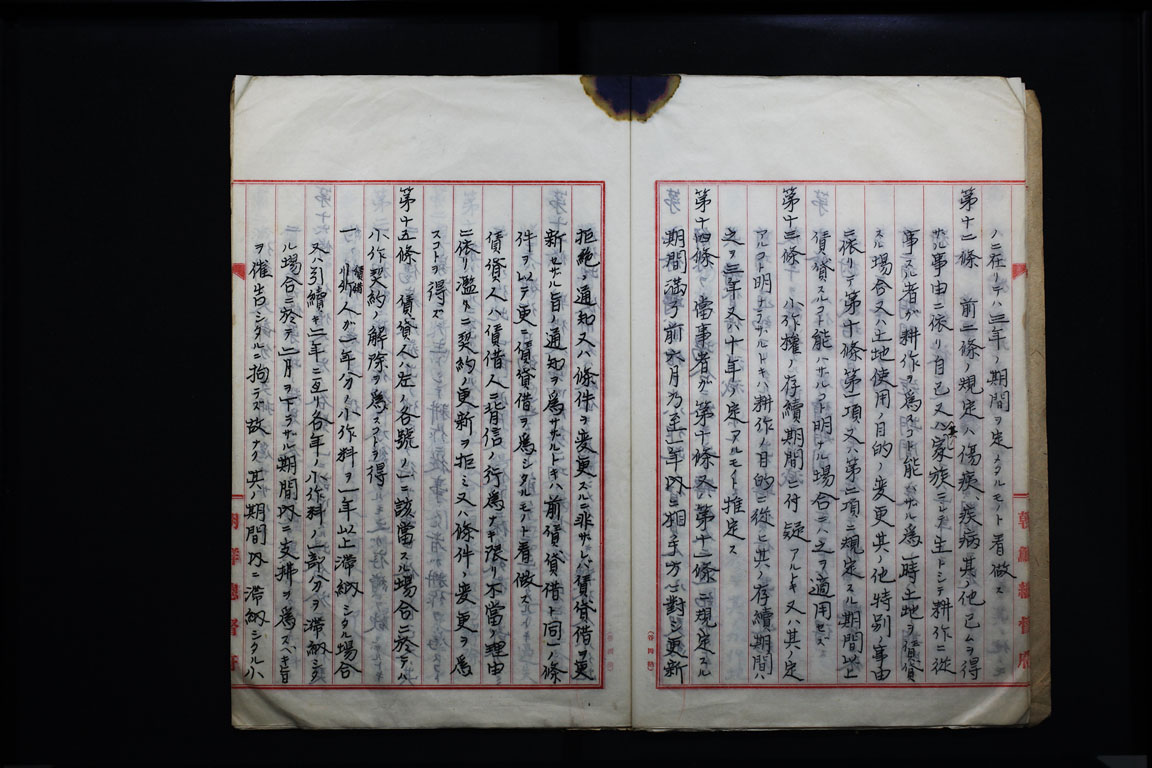 ハ二在リテハ三年ノ期間ヲ定メタルモノト看做ス
第十二條 前二條ノ規定ハ傷痍疾病其ノ他已ムヲ得
ザル事由ニ依リ自己又ハ家族ニシテ主トシテ耕作ニ從
事スル者ガ耕作ヲ爲スコト能ハザル爲一時土地ヲ賃貸
スル場合又ハ土地使用ノ目的ノ變更其ノ他特別ノ事由
ニ依リテ第十條第一項又ハ第二項ニ規定スル期間以上
賃貸スルコト能ハザルコト明ナル場合ニハ之ヲ適用セズ
第十三條 小作權ノ存續期間ニ付疑アルトキ又ハ其ノ定
アルコト明ナラザルトキハ耕作ノ目的ニ從ヒ其ノ存續期間ハ
之ヲ三年又ハ十年ノ定アルモノト推定ス
第十四條 當事者ガ第十條又ハ第十一條ニ規定スル
期間滿了前六月乃至一年內ニ相手方ニ對シ更新
拒絶ノ通知又ハ條件ヲ變更スルニ非ザレバ賃貸借ヲ更
新セザル旨ノ通知ヲ爲サザルトキハ前賃貸借ト同一ノ條
件ヲ以テ更ニ賃貸借ヲ爲シタルモノト看做ス
賃貸人ハ賃借人ニ背信ノ行爲ナキ限リ不當ノ理由
ニ依リ濫ニ契約ノ更新ヲ拒ミ又ハ條件ノ變更ヲ爲
スコトヲ得ズ
第十五條 賃貸人ハ左ノ各號ノ一ニ該當スル場合ニ於テハ
小作契約ノ解除ヲ爲スコトヲ得
一 賃借人ガ一年分ノ小作料ヲ一年以上滯納シタル場合
又ハ引續キ二年ニ亙リ各年ノ小作料ノ一部分ヲ滯納シタ
ル場合ニ於テ二月ヲ下ラザル期間內ニ支拂ヲ爲スベキ旨
ヲ催告シタルニ拘ラズ故ナク其ノ期間內ニ滯納シタル小
朝鮮總督府
朝鮮總督府